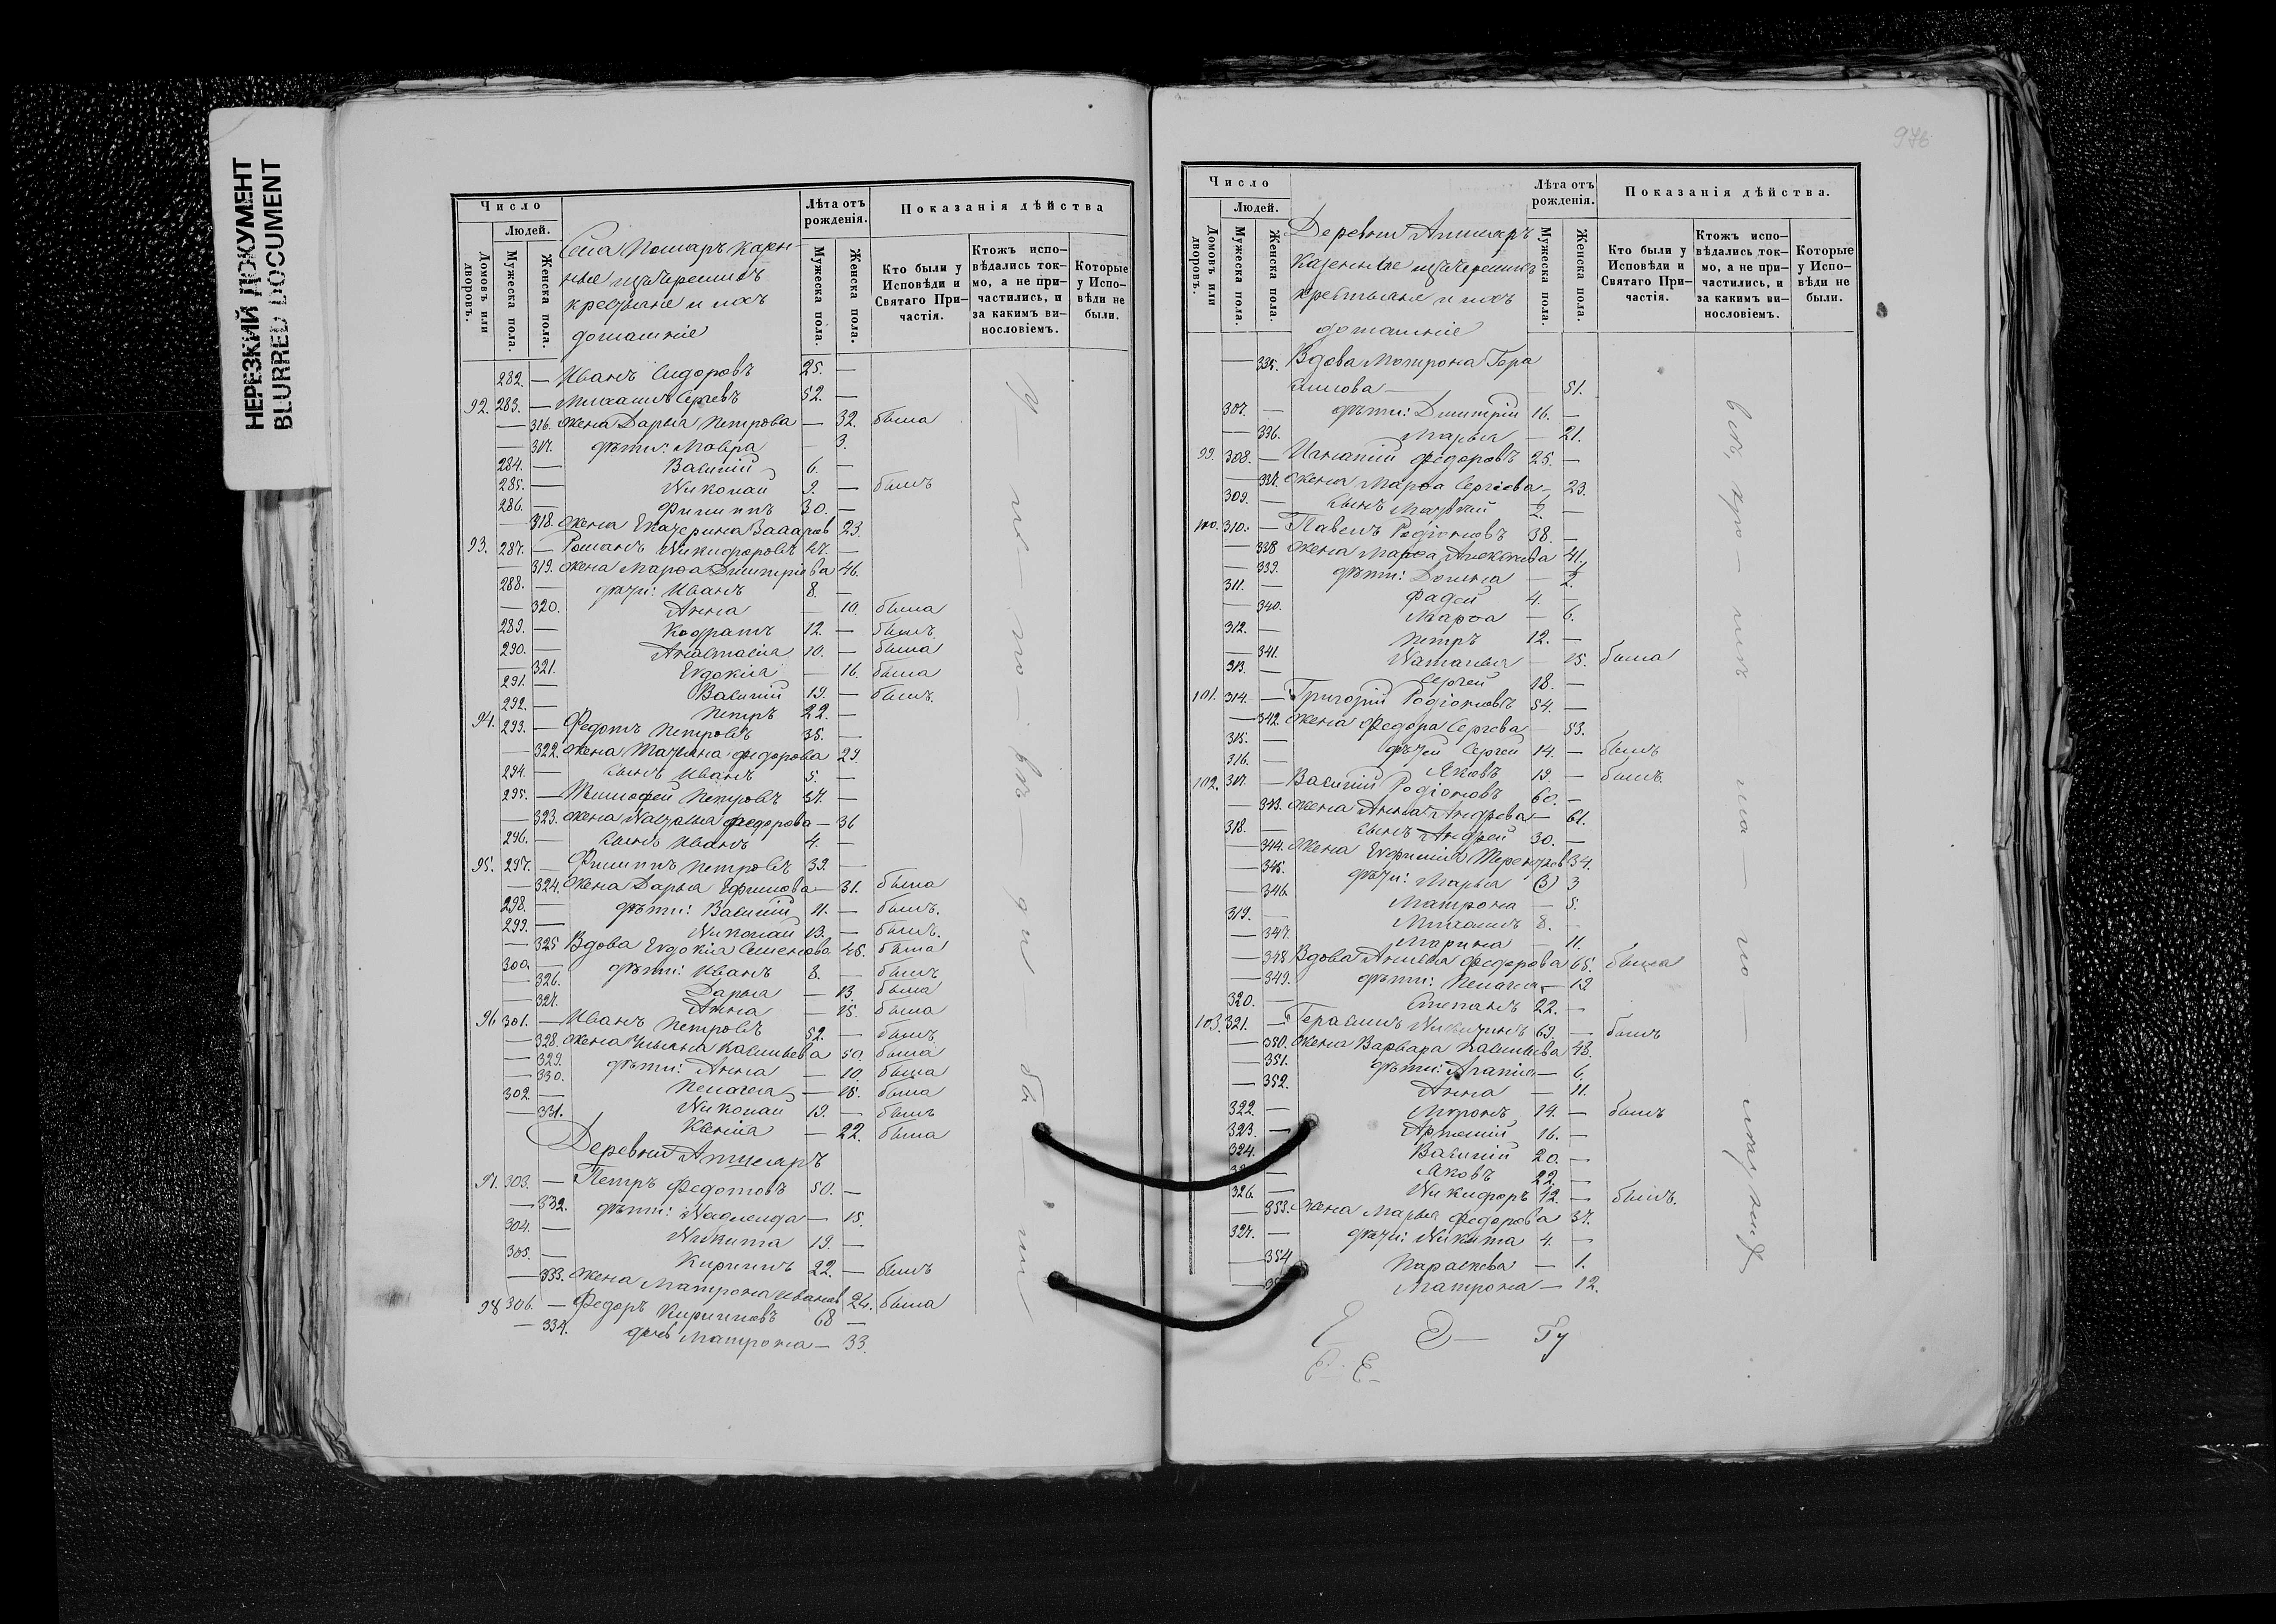 НЕРЕЗКИЙ ДОКУМЕНТ
BLURRED DOCUMENT
Число
Людей.
Домовъ или дворовъ.
Мужеска пола.
Женска пола.
Села Помаръ казен-
ные изъ черемисъ
крестьяне и ихъ
домашніе
Лѣта отъ рожденія.
Мужеска пола.
Женска пола.
Показанія дѣйства
Кто были у Исповѣди и Святаго При-частія.
Ктожъ испо-вѣдались ток-мо, а не при-частились, и за какимъ ви-нословіемъ.
Которые у Испо-вѣди не были.
282. — Иванъ Сидоровъ 25. —
92. 283. — Михаилъ Сергѣевъ 52. —
— 316. Жена Дарья Петрова — 32. была
— 317. дѣти: Мавра — 3.
284. — Василий 6. —
285. — Николай 9. — былъ
286. — Филиппъ 30. —
— 318. Жена Екатерина 23.
93. 287. — Романъ Никифоровъ 47. —
— 319. Жена Марѳа Дмитріева 46.
288. — дѣти: Иванъ 8. —
— 320. Анна — 10. была
289. — Кодратъ 12. — былъ
290. — Анастасія 10. — была
— 321. Евдокія — 16. была
291. — Василий 19. — былъ
292. — Петръ 22. —
94. 293. — Федотъ Петровъ 35. —
— 322. Жена Татьяна Федорова 29.
294. — сынъ Иванъ 5. —
295. — Тимофей Петровъ 37. —
— 323. Жена Наталья Федорова — 36
296. — сынъ Иванъ 4. —
95. 297. — Филиппъ Петровъ 39. —
— 324. Жена Дарья Ефимова — 31. была
298. — дѣти: Василий 11. — былъ.
299. — Николай 13. — былъ.
— 325 Вдова Евдокія Семенова 45. была
300. — дѣти: Иванъ 8. — былъ
— 326. Дарья — 13. была
— 327. Анна — 15. была
96 301. — Иванъ Петровъ 52. — былъ
— 328. Жена Ульяна Васильева 50. была
— 329. дѣти: Анна — 10. была
— 330. Пелагея — 15. была
302. — Николай 19. — былъ
— 331. Ксенія — 22. была
Деревни Апшаръ
97. 303. — Петръ Федотовъ 50. —
— 332. дѣти: Надежда — 15.
304. — Никита 19. —
305. — Кириллъ 22. — былъ
— 333. Жена Матрона Иванов 24. была
98 306. — Федоръ Кирилловъ 68 —
— 334. дочь Матрона — 33.
976
Число
Людей.
Домовъ или дворовъ.
Мужеска пола.
Женска пола.
Деревни Апшаръ
казенные изъ черемисъ
крестьяне и ихъ
домашніе
Лѣта отъ рожденія.
Мужеска пола.
Женска пола.
Показанія дѣйства.
Кто были у Исповѣди и Святаго При-частія.
Ктожъ испо-вѣдались ток-мо, а не при-частились, и за какимъ ви-нословіемъ.
Которые у Испо-вѣди не были.
— 335. Вдова Матрона Гера
симова — — 51.
307. — дѣти: Дмитрій 16. —
— 336. Марья — 21.
99. 308. — Игнатий Федоровъ 25. —
— 337. Жена Марѳа Сергіева — 23.
309. — сынъ 2. —
100. 310. — Павелъ Родіоновъ 38. —
— 338 Жена Марѳа Алексѣева 41.
— 339. дѣти: Домна — 2.
311. — Фадей 4. —
— 340. Марѳа — 6.
312. — Петръ 12. —
— 341. Наталья — 15. была
313. — Сергей 18. —
101. 314. — Григорій Родіоновъ 54. —
— 342. Жена Федора Сергѣева — 53.
315. — дѣтей Сергей 14. — былъ
316. — Яковъ 19. — былъ
102. 317. — Василий Родіоновъ 60. —
— 343. Жена Анна Андрѣева — 61.
318. — сынъ Андрей 30. —
— 344. Жена Терентьев 34.
— 345. дѣти: Марья (3) 3
— 346. Матрона — 5.
319. — Михаилъ 8. —
— 347. Марина — 11.
— 348 Вдова Федорова 65. была
— 349. дѣти: Пелагея — 19
320. — Степанъ 22. —
103. 321. — Герасимъ 69. — былъ
— 350. Жена Варвара Васильева 48.
— 351. дѣти: Агапия — 6
— 352. Анна — 11.
322. — Миронъ 14. — былъ
323. — Артемій 16. —
324. Василий 20. —
— Яковъ 22. —
326. — Никифоръ 42. — былъ.
— 353. Жена Марья Федорова 37.
327. — дѣти: Никита 4. —
— 354 Параскева — 1.
— Матрона — 12.